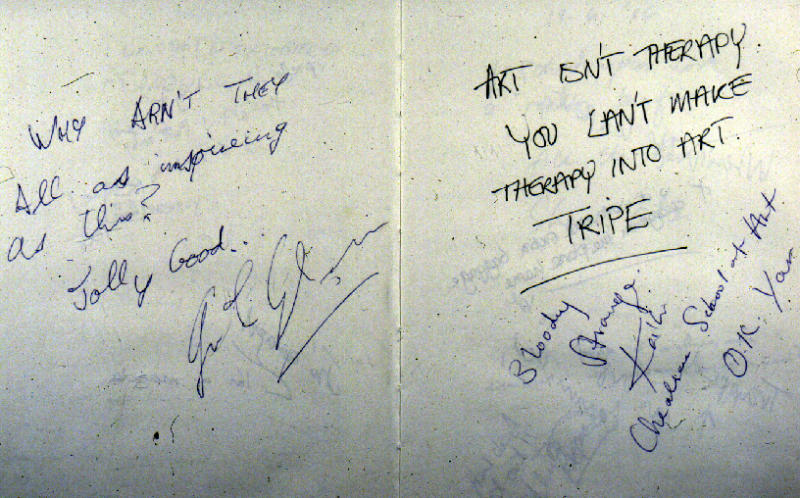 WHY ARN'T THEY
All as inspireing
as this?
Jolly Good..
ART ISN'T THERAPY.
YOU CAN'T MAKE
THERAPY INTO ART.
TRIPE
Bloody
Strange.
Chealsea School of Art
O.K. Yar